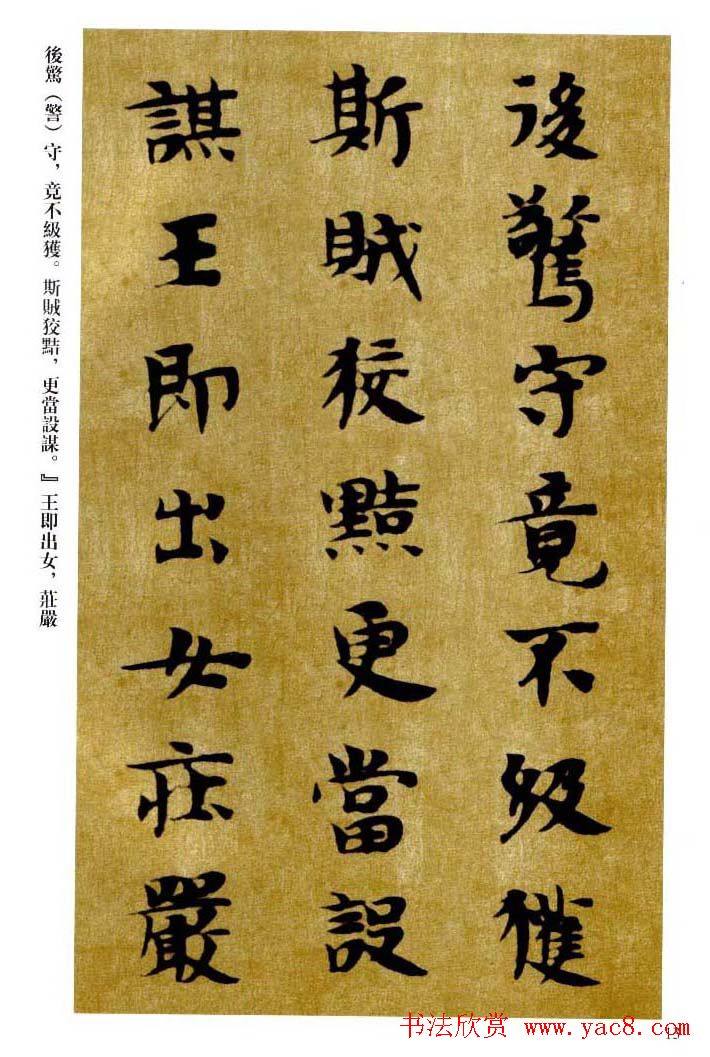 後驚守竟不級獲
斯賊狡黠更當設
謀王即出女莊嚴
後驚（警）守，竟不級獲。斯賊狡黠，更當設謀。』王即出女，莊嚴
15
书法欣赏 www.yac8.com